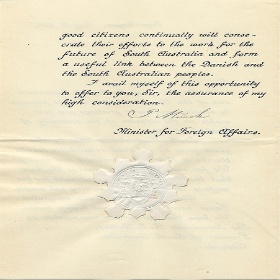 good citizens continually will conse-
crate their efforts to the work for the
future of South Australia and form
a useful link between the Danish and
the South Australian peoples.
I avail myself of this opportunity
to offer to you, Sir, the assurance of my
high consideration.
Minister for Foreign Affairs.